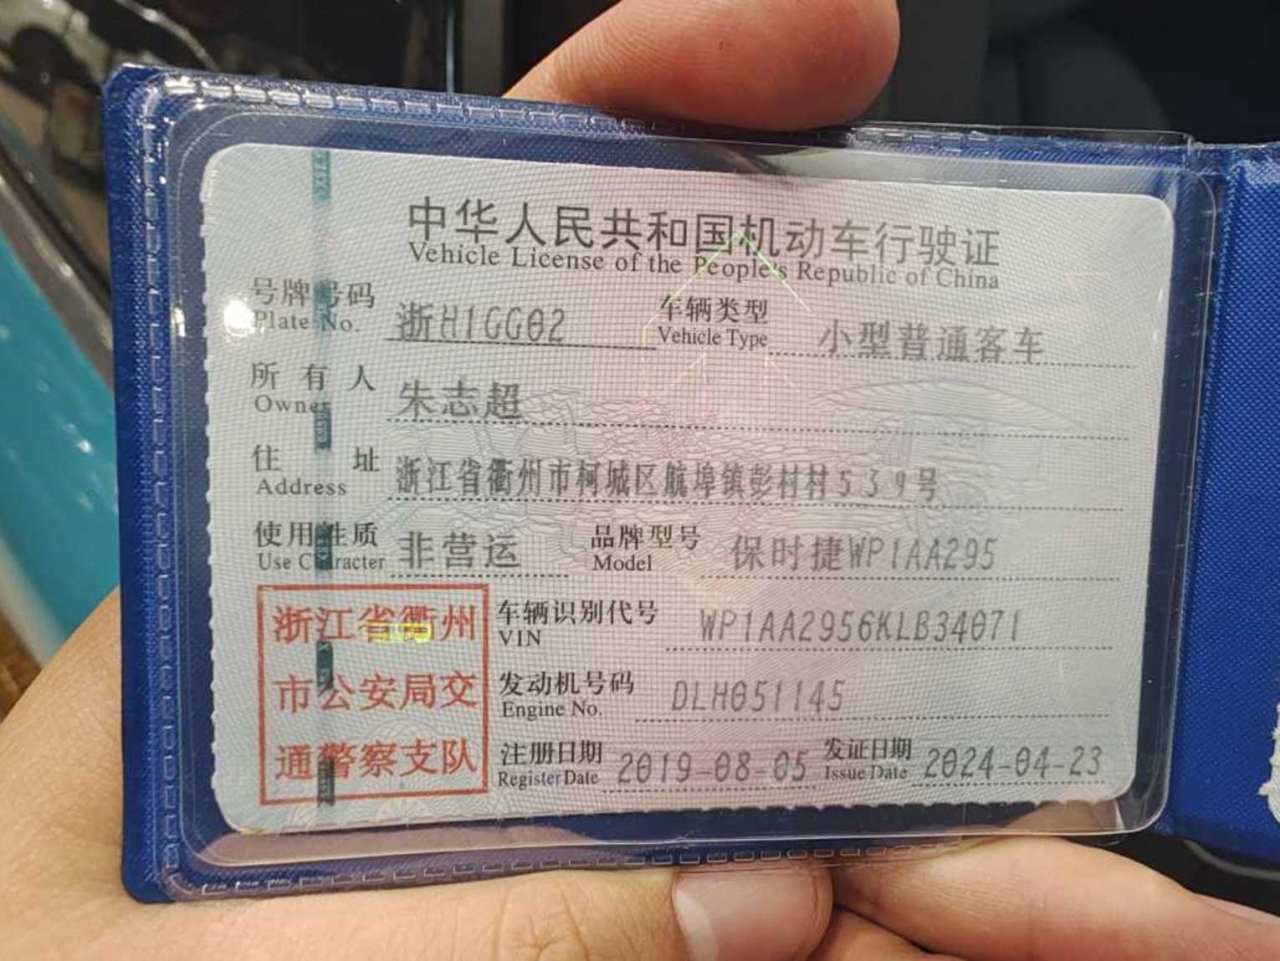 中华人民共和国机动车行驶证
Vehicle License of the People's Republic of China
号牌号码 浙H1GG02 车辆类型 小型普通客车
Plate No. Vehicle Type
所有人 朱志超
Owner
住址 浙江省衢州市柯城区航埠镇彭村村539号
Address
使用性质 非营运 品牌型号 保时捷WP1AA295
Use Character Model
浙江省衢州
市公安局交
通警察支队
车辆识别代号 WP1AA2956KLB34071
VIN
发动机号码 DLH051145
Engine No.
注册日期 2019-08-05 发证日期 2024-04-23
Register Date Issue Date